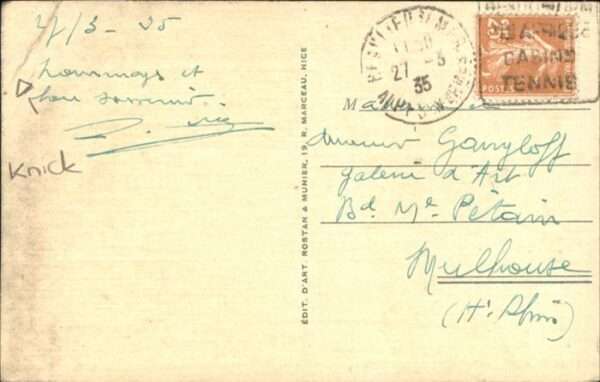 27/3 - 35
hommages et
bon souvenir.
Knick
ÉDIT. D'ART. ROSTAN & MUNIER, 19, R. MARCEAU, NICE
27 - 3
35
CABINS
TENNIS
POSTES
Gangloff
galerie d'Art
Bd. Mal Pétain
Mulhouse
(Ht Rhin)